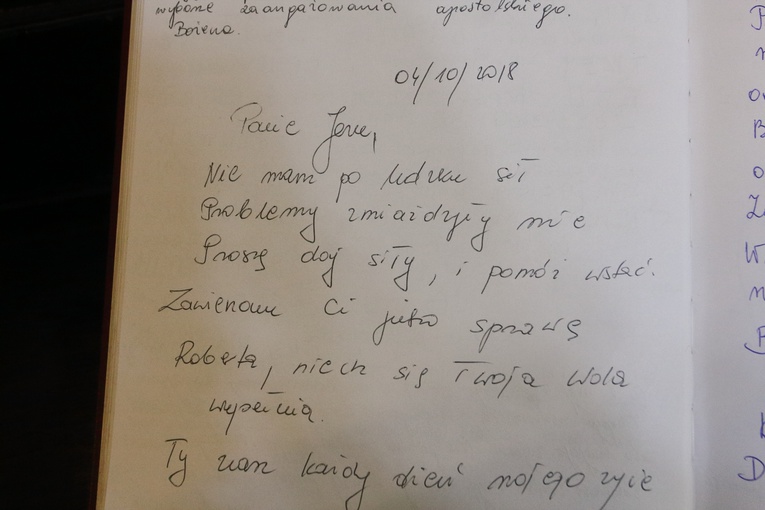 wybone zaangażowania apostolskiego.
Bożena.
04/10/2018
Panie Jezu,
Nie mam po ludzku sił
Problemy zmiażdżyły mnie
Proszę daj siły, i pomóż wstać.
Zawierzam Ci jutro sprawę
Roberta, niech się Twoja Wola
wypełnia.
Ty znasz każdy dzień mojego życie